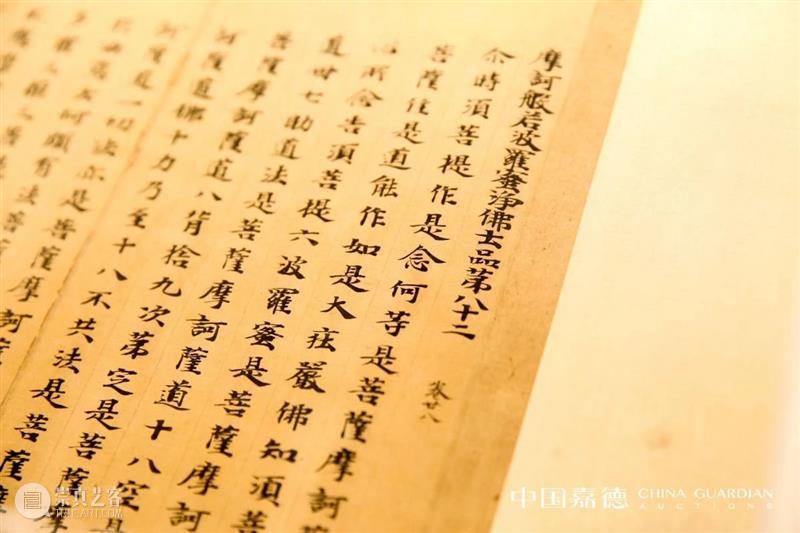 摩訶般若波羅蜜淨佛土品第八十二
卷廿八
尒時須菩提作是念何等是菩薩摩訶
菩薩住是道能作如是大莊嚴佛知須菩
心所念告須菩提六波羅蜜是菩薩摩訶
道卅七助道法是菩薩摩訶薩道十八空是
菩薩摩訶薩道八背捨九次第定是菩薩
訶薩道佛十力乃至十八不共法是菩薩摩
訶薩道一切法亦是菩薩摩訶薩
意云何頗有法菩薩
中国嘉德 CHINA GUARDIAN
AUCTIONS
崇真艺客